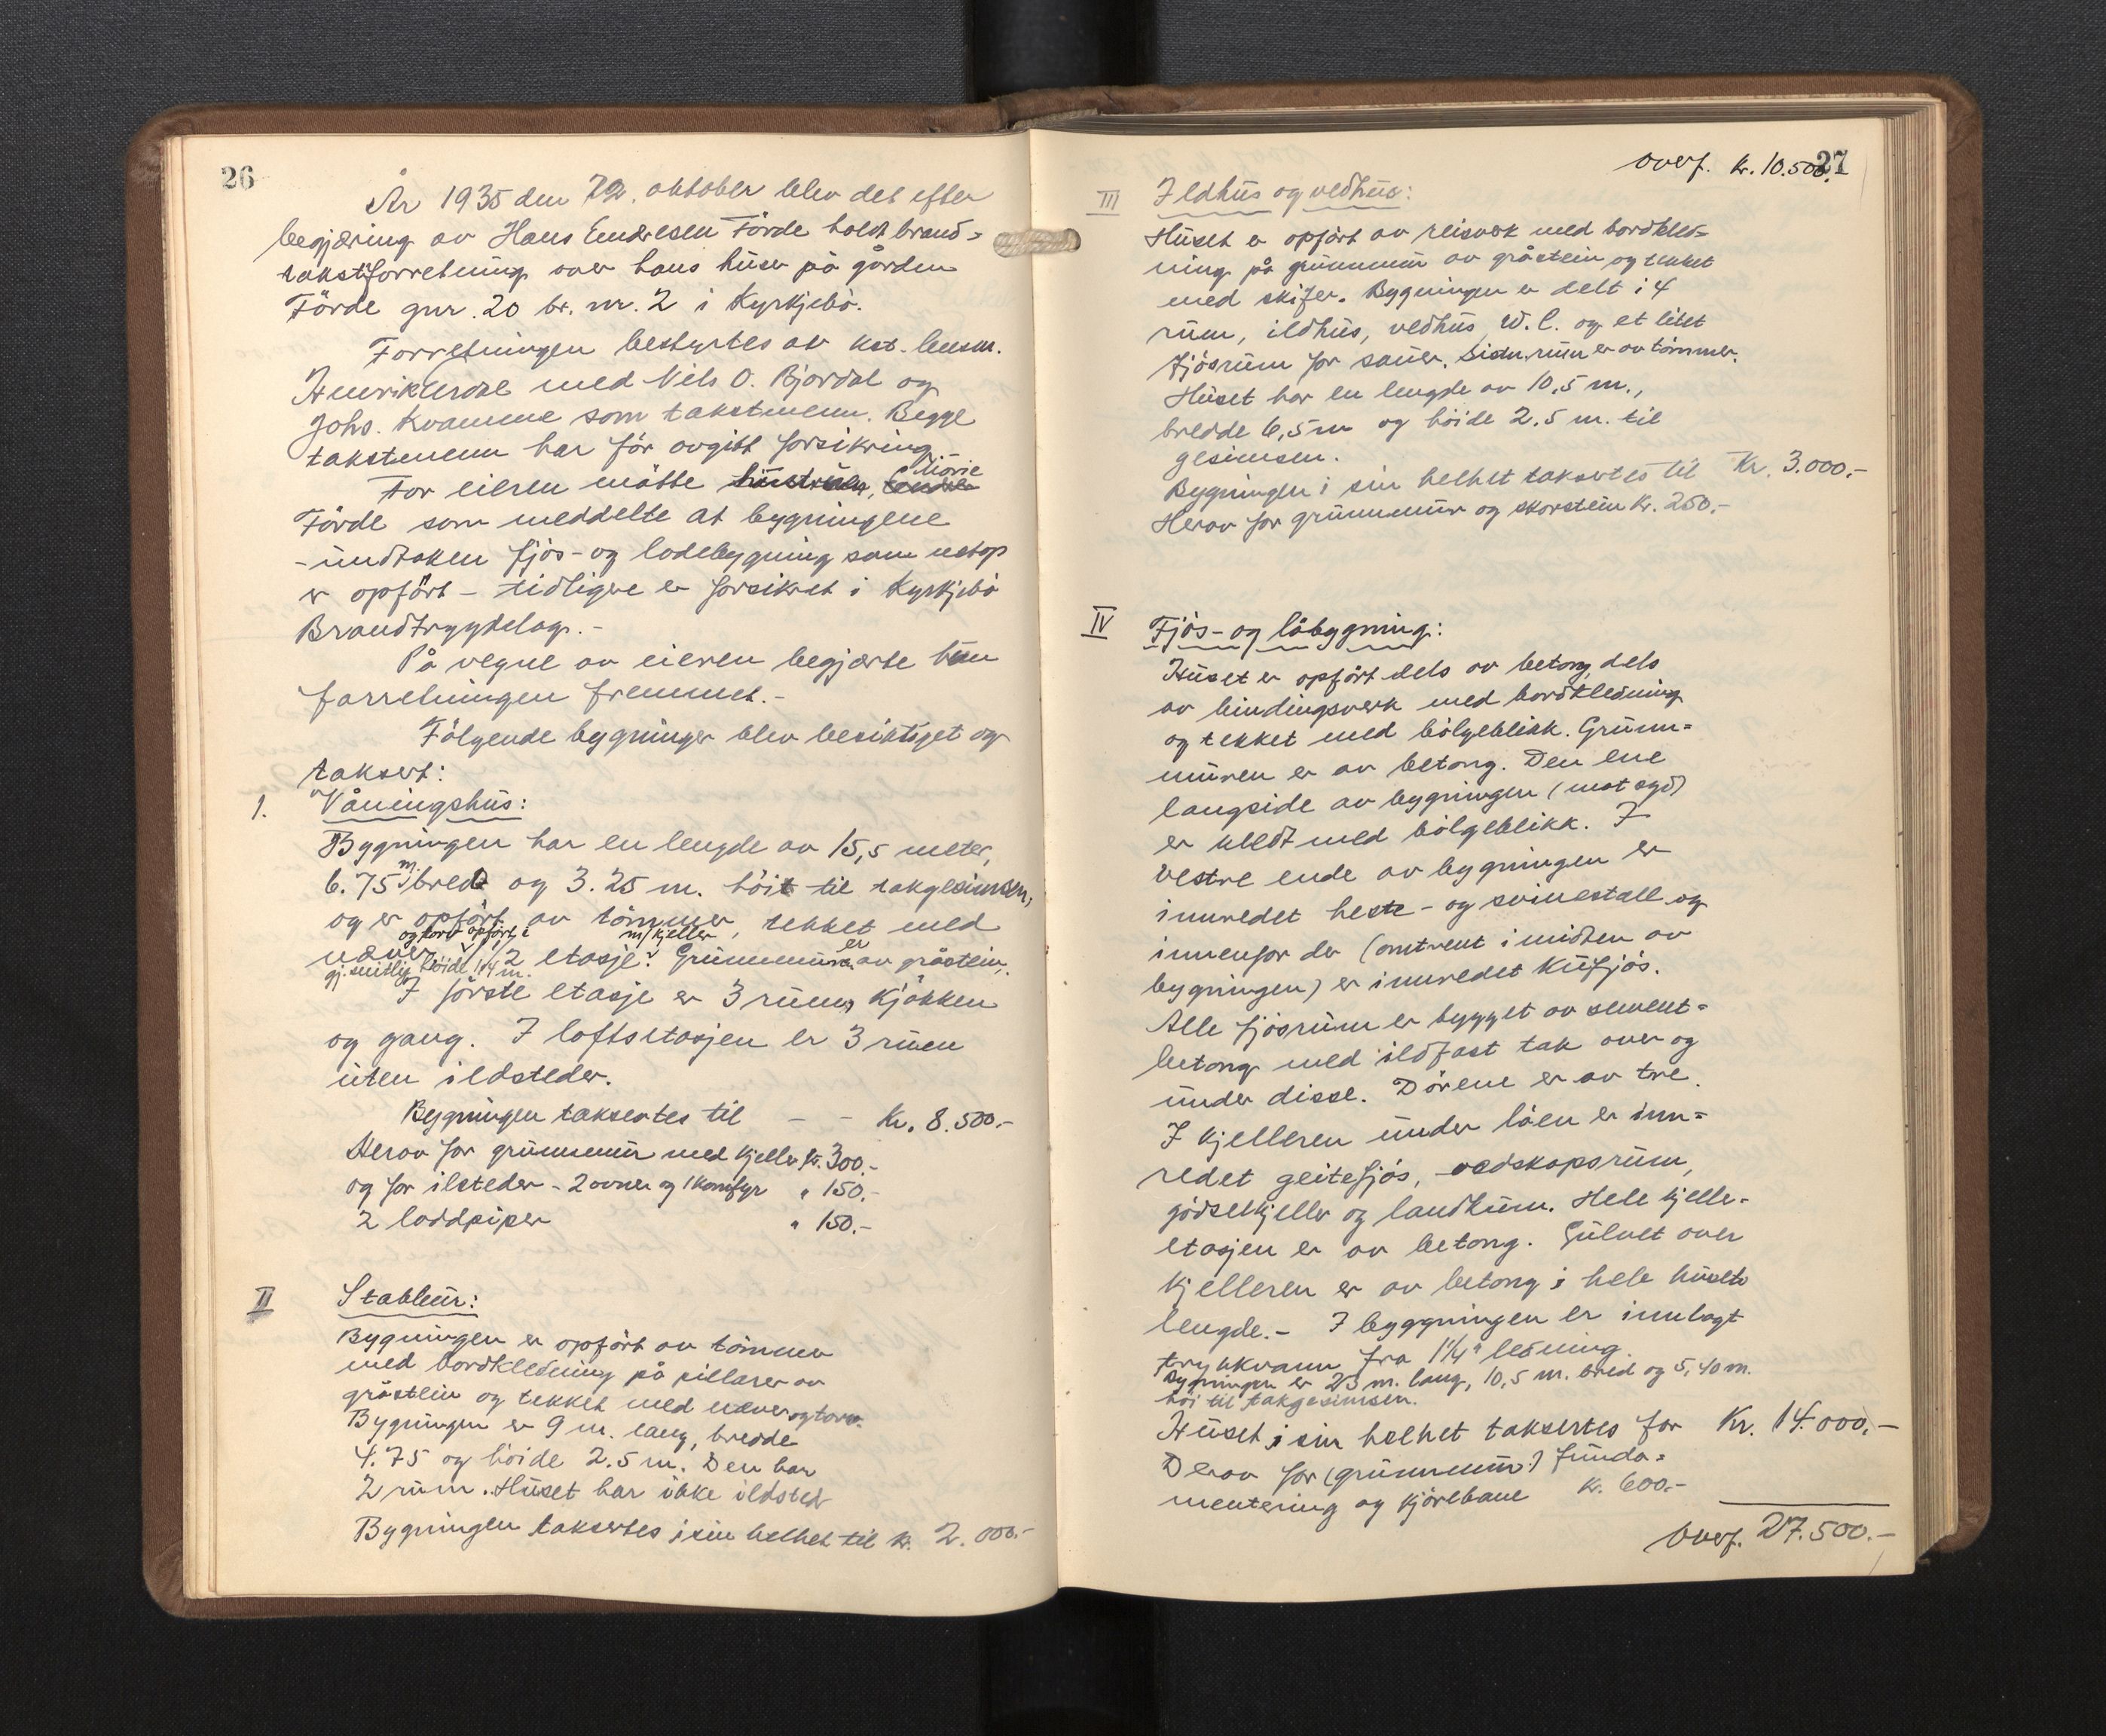 26
År 1935 den 22. oktober blev det efter
begjæring av Hans Endresen Förde holdt brand=
takstforretning over hans huser på gården
Förde gnr. 20 br. nr. 2 i Kyrkjebö.
Forretningen bestyrtes av kst. lensm.
Henrik Erdal med Nils O. Bjordal og
Johs. Kvamme som takstmenn. Begge
takstmenn har för avgitt forsikring.-
For eieren mötte hustruen, Marie
Förde som meddelte at bygningene
- undtaken fjös- og lodebygning som netop
er opfört - tidligere er forsikret i Kyrkjebö
Brandtrygdelag.-
På vegne av eieren begjærte hun
forretningen fremmet.-
Fölgende bygninger blev besiktiget og
taksert:
1. Våningshus:
Bygningen har en lengde av 15,5 meter,
6.75 m. bred og 3.25 m. höi til takgesimsen,
og er opfört av tömmer, tekket med
og torv opfört i m/kjeller er
never 1/2 etasje. Grunnmur av gråstein,
gj.snitlig höide 1/4 m.
I förste etasje er 3 rum, kjökken
og gang. I loftsetasjen er 3 rum
uten ildsteder.
Bygningen taksertes til - - Kr. 8.500.-
Herav for grunnmur med kjeller kr. 300.-
og for ilsteder - 2 ovner og 1 komfyr " 150.-
2 loddpiper " 150.-
II Stabbur:
Bygningen er opfört av tömmer
med bordkledning på pillarer av
gråstein og tekket med never og torv.
Bygningen er 9 m. lang, bredde
4.75 og höide 2.5 m. Den har
2 rum. Huset har ikke ildsted
Bygningen taksertes i sin helhet til kr. 2.000.-
27
overf. kr. 10.500.-
III Ildhus og vedhus:
Huset er opfört av reisverk med bordkled=
ning på grunnmur av gråstein og tekket
med skifer. Bygningen er delt i 4
rum, ildhus, vedhus W.C. og et litet
fjösrum for sauer. Sistn. rum er av tömmer.
Huset har en lengde av 10,5 m.,
bredde 6,5 m og höide 2.5 m. til
gesimsen.
Bygningen i sin helhet taksertes til Kr. 3.000.-
Herav for grunnmur og skorstein kr. 250.-
IV Fjös- og löbygning:
Huset er opfört dels av betong, dels
av bindingsverk med bordkledning
og tekket med bölgeblikk. Grunn=
muren er av betong. Den ene
langside av bygningen (mot syd)
er kledt med bölgeblikk. I
vestre ende av bygningen er
innredet heste- og svinestall og
innenfor der (omtrent i midten av
bygningen) er innredet kufjös.
Alle fjösrum er bygget av sement=
betong med ildfast tak over og
under disse. Dörene er av tre.
I kjelleren under låen er inn=
redet geitefjös, redskapsrum,
gjödselkjeller og landkum. Hele kjeller-
etasjen er av betong. Gulvet over
kjelleren er av betong i hele husets
lengde.- I byggningen er innlagt
trykkvann fra 1 1/4" ledning.
Bygningen er 23 m. lang, 10,5 m. bred og 5,40 m.
höi til takgesimsen.
Huset i sin helhet taksertes for Kr. 14.000.-
Derav for (grunnmur) funda=
mentering og kjörebane kr. 600.-
Overf. 27.500.-